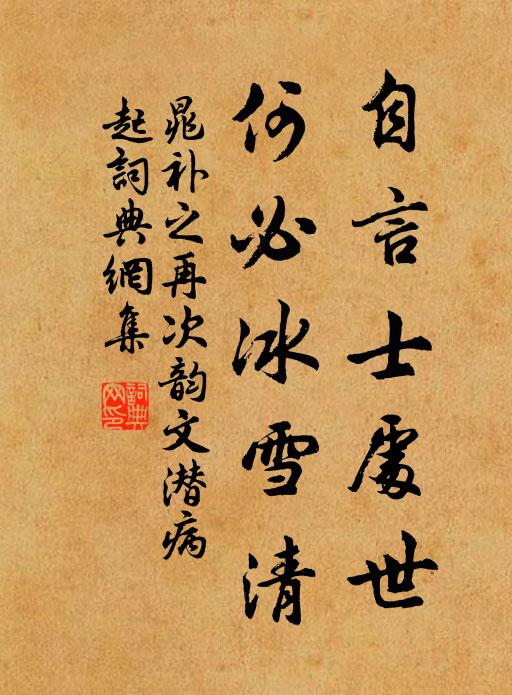 自言士處世
何必冰雪清
晁补之再次韵文潜病
起詞典網集
詞典
网印